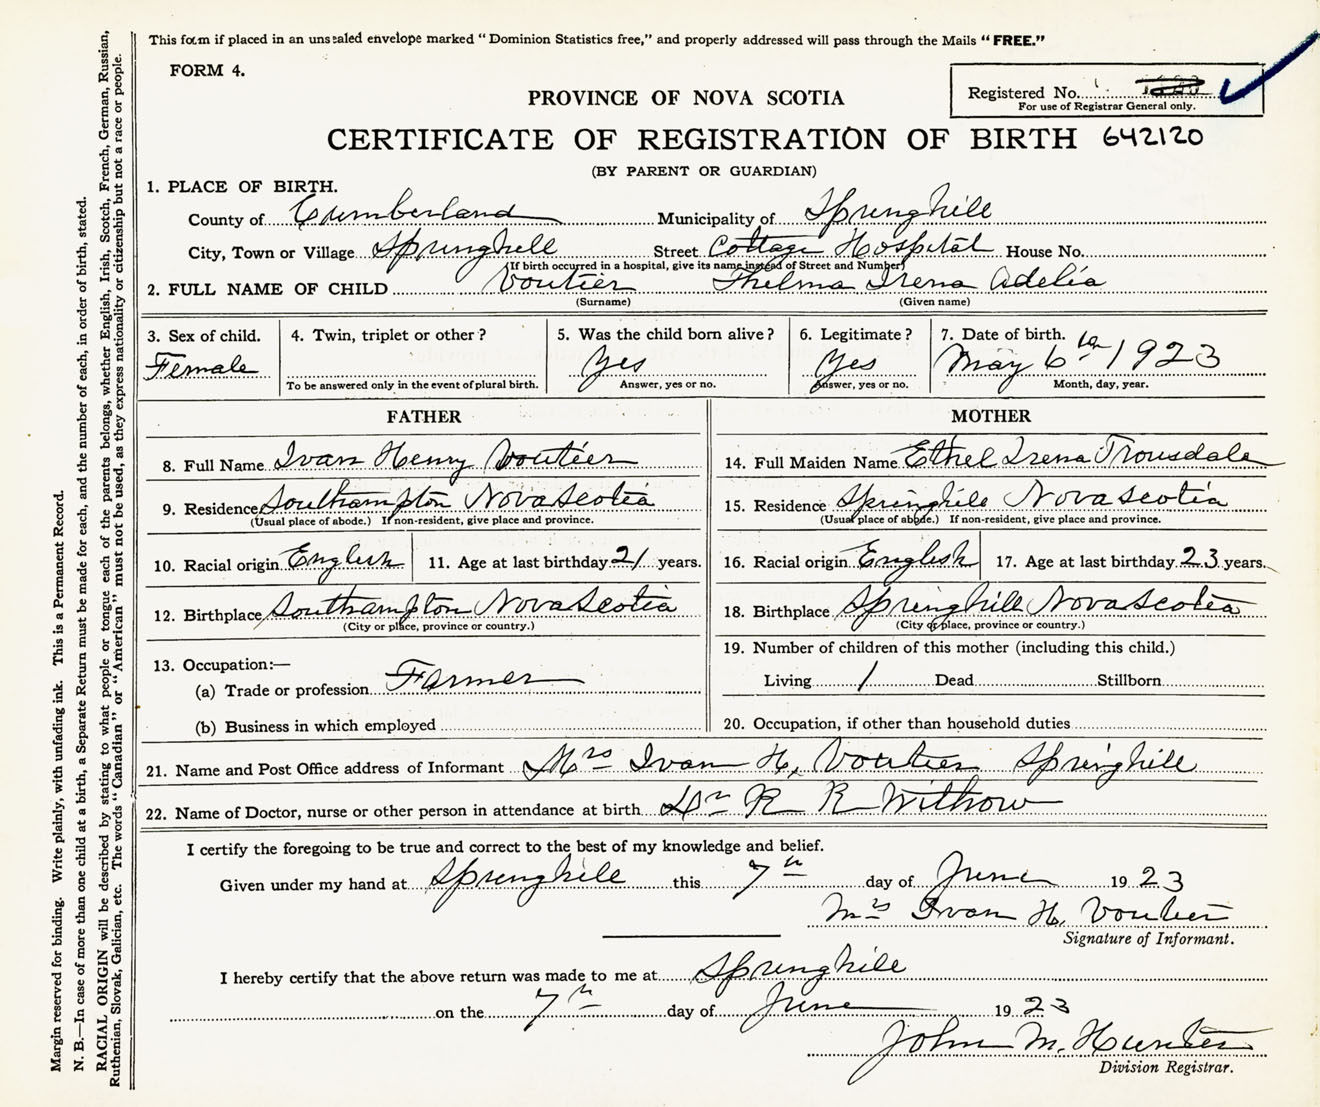 This form if placed in an unsealed envelope marked "Dominion Statistics free," and properly addressed will pass through the Mails "FREE."
FORM 4.
Registered No.
For use of Registrar General only.
PROVINCE OF NOVA SCOTIA
CERTIFICATE OF REGISTRATION OF BIRTH 642120
(BY PARENT OR GUARDIAN)
1. PLACE OF BIRTH.
County of Cumberland Municipality of Springhill
City, Town or Village Springhill Street Cottage Hospital House No.
(If birth occurred in a hospital, give its name instead of Street and Number)
2. FULL NAME OF CHILD Voutier Thelma Irena Adelia
(Surname) (Given name)
3. Sex of child. 4. Twin, triplet or other? 5. Was the child born alive? 6. Legitimate? 7. Date of birth.
Female Yes Yes May 6th 1923
To be answered only in the event of plural birth. Answer, yes or no. Answer, yes or no. Month, day, year.
FATHER
8. Full Name Ivan Henry Voutier
9. Residence Southampton Nova Scotia
(Usual place of abode.) If non-resident, give place and province.
10. Racial origin English 11. Age at last birthday 21 years.
12. Birthplace Southampton Nova Scotia
(City or place, province or country.)
13. Occupation:—
(a) Trade or profession Farmer
(b) Business in which employed
MOTHER
14. Full Maiden Name Ethel Irena Trousdale
15. Residence Springhill Nova Scotia
(Usual place of abode.) If non-resident, give place and province.
16. Racial origin English 17. Age at last birthday 23 years.
18. Birthplace Springhill Nova Scotia
(City or place, province or country.)
19. Number of children of this mother (including this child.)
Living 1 Dead Stillborn
20. Occupation, if other than household duties
21. Name and Post Office address of Informant Mrs Ivan H. Voutier Springhill
22. Name of Doctor, nurse or other person in attendance at birth Dr R R Withrow
I certify the foregoing to be true and correct to the best of my knowledge and belief.
Given under my hand at Springhill this 7th day of June 1923
Mrs Ivan H. Voutier
Signature of Informant.
I hereby certify that the above return was made to me at Springhill
on the 7th day of June 1923
John M. Hunter
Division Registrar.
Margin reserved for binding. Write plainly, with unfading ink. This is a Permanent Record.
N. B.—In case of more than one child at a birth, a Separate Return must be made for each, and the number of each, in order of birth, stated.
RACIAL ORIGIN will be described by stating to what people or tongue each of the parents belongs, whether English, Irish, Scotch, French, German, Russian,
Ruthenian, Slovak, Galician, etc. The words "Canadian" or "American" must not be used, as they express nationality or citizenship but not a race or people.